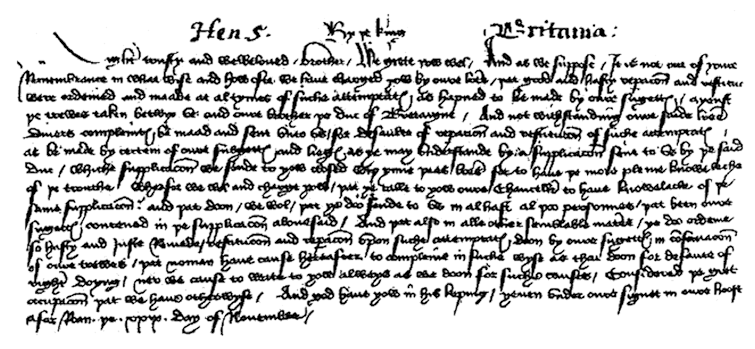 Hen 5. By þe king Britania:
Worshipful trusty and welbeloved brother, We grete yow wel, And as we suppose, It is not out of youre
Remembrance in what wyse and how ofte we have charged yow by oure lettres, þat good and hasty reparacon and restitucion
were ordeined and maade at al tymes of suche attemptats, as hapned to be made by oure suggetts, ayenst
þe trewes taken betwyx us and oure brother þe duc of Bretaigne, And not withstandyng oure saide lettres
divers complaints be maad and sent unto us, for defaulte of reparacon and restitucon of suche attemptats,
as be made by certein of oure suggetts and lieges, as ye may understande by a supplicacon sent to us by þe said
duc, whiche supplicacon we sende to yow closed wythynne þees lettres for to have þe more pleine knoweleche
of þe trouthe, Wherfor we wol and charge yow, þat ye calle to yow oure Chancellr to have knowelache of þe
same supplicacon: and þat doon, we wol, þat ye doo sende to us in al hast al þoo personnes, þat been oure
suggetts contened in þe supplicacon abovesaid, And þat also in alle other semblable maters, ye do ordeine
so hasty and juste Remede, restitucon and reparacon upon suche attemptats, doon by oure suggetts in conservacon
of oure trewes, þat noman have cause hereafter, to compleine in suche wyse as thai doon for defaute of
right doyng, ner we cause to write to yow always as we doon for suche causes, Considered þe gret
occupacon þat we have otherwyse, And god have yow in his keping, yeven under oure signet in oure hoost
afor Roan. þe. xxix. day of November,